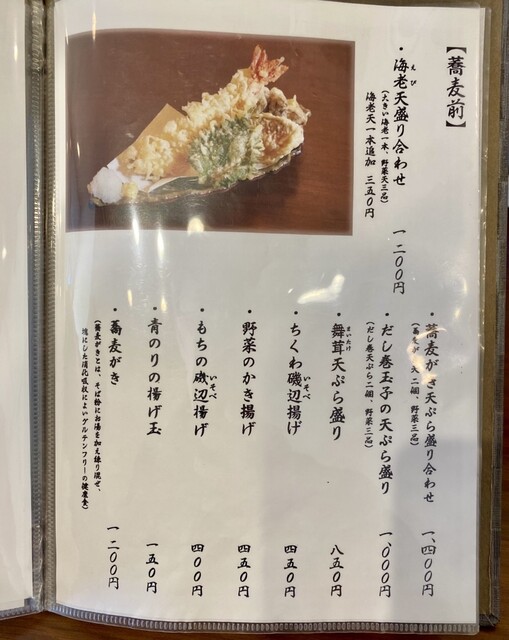 【蕎麦前】
・海老天盛り合わせ 一二〇〇円
えび
(大きい海老一本、野菜天三品)
海老天一本追加 三五〇円
・蕎麦がき天ぷら盛り合わせ 一、四〇〇円
二個、野菜三品)
・だし巻玉子の天ぷら盛り 一、〇〇〇円
(だし巻天ぷら二個、野菜三品)
・舞茸天ぷら盛り 八五〇円
まいたけ
・ちくわ磯辺揚げ 四五〇円
いそべ
・野菜のかき揚げ 四五〇円
・もちの磯辺揚げ 四〇〇円
いそべ
・青のりの揚げ玉 一五〇円
・蕎麦がき 一二〇〇円
(蕎麦がきとは、そば粉にお湯を加え練り混ぜ、
塊にした消化吸収によいグルテンフリーの健康食)